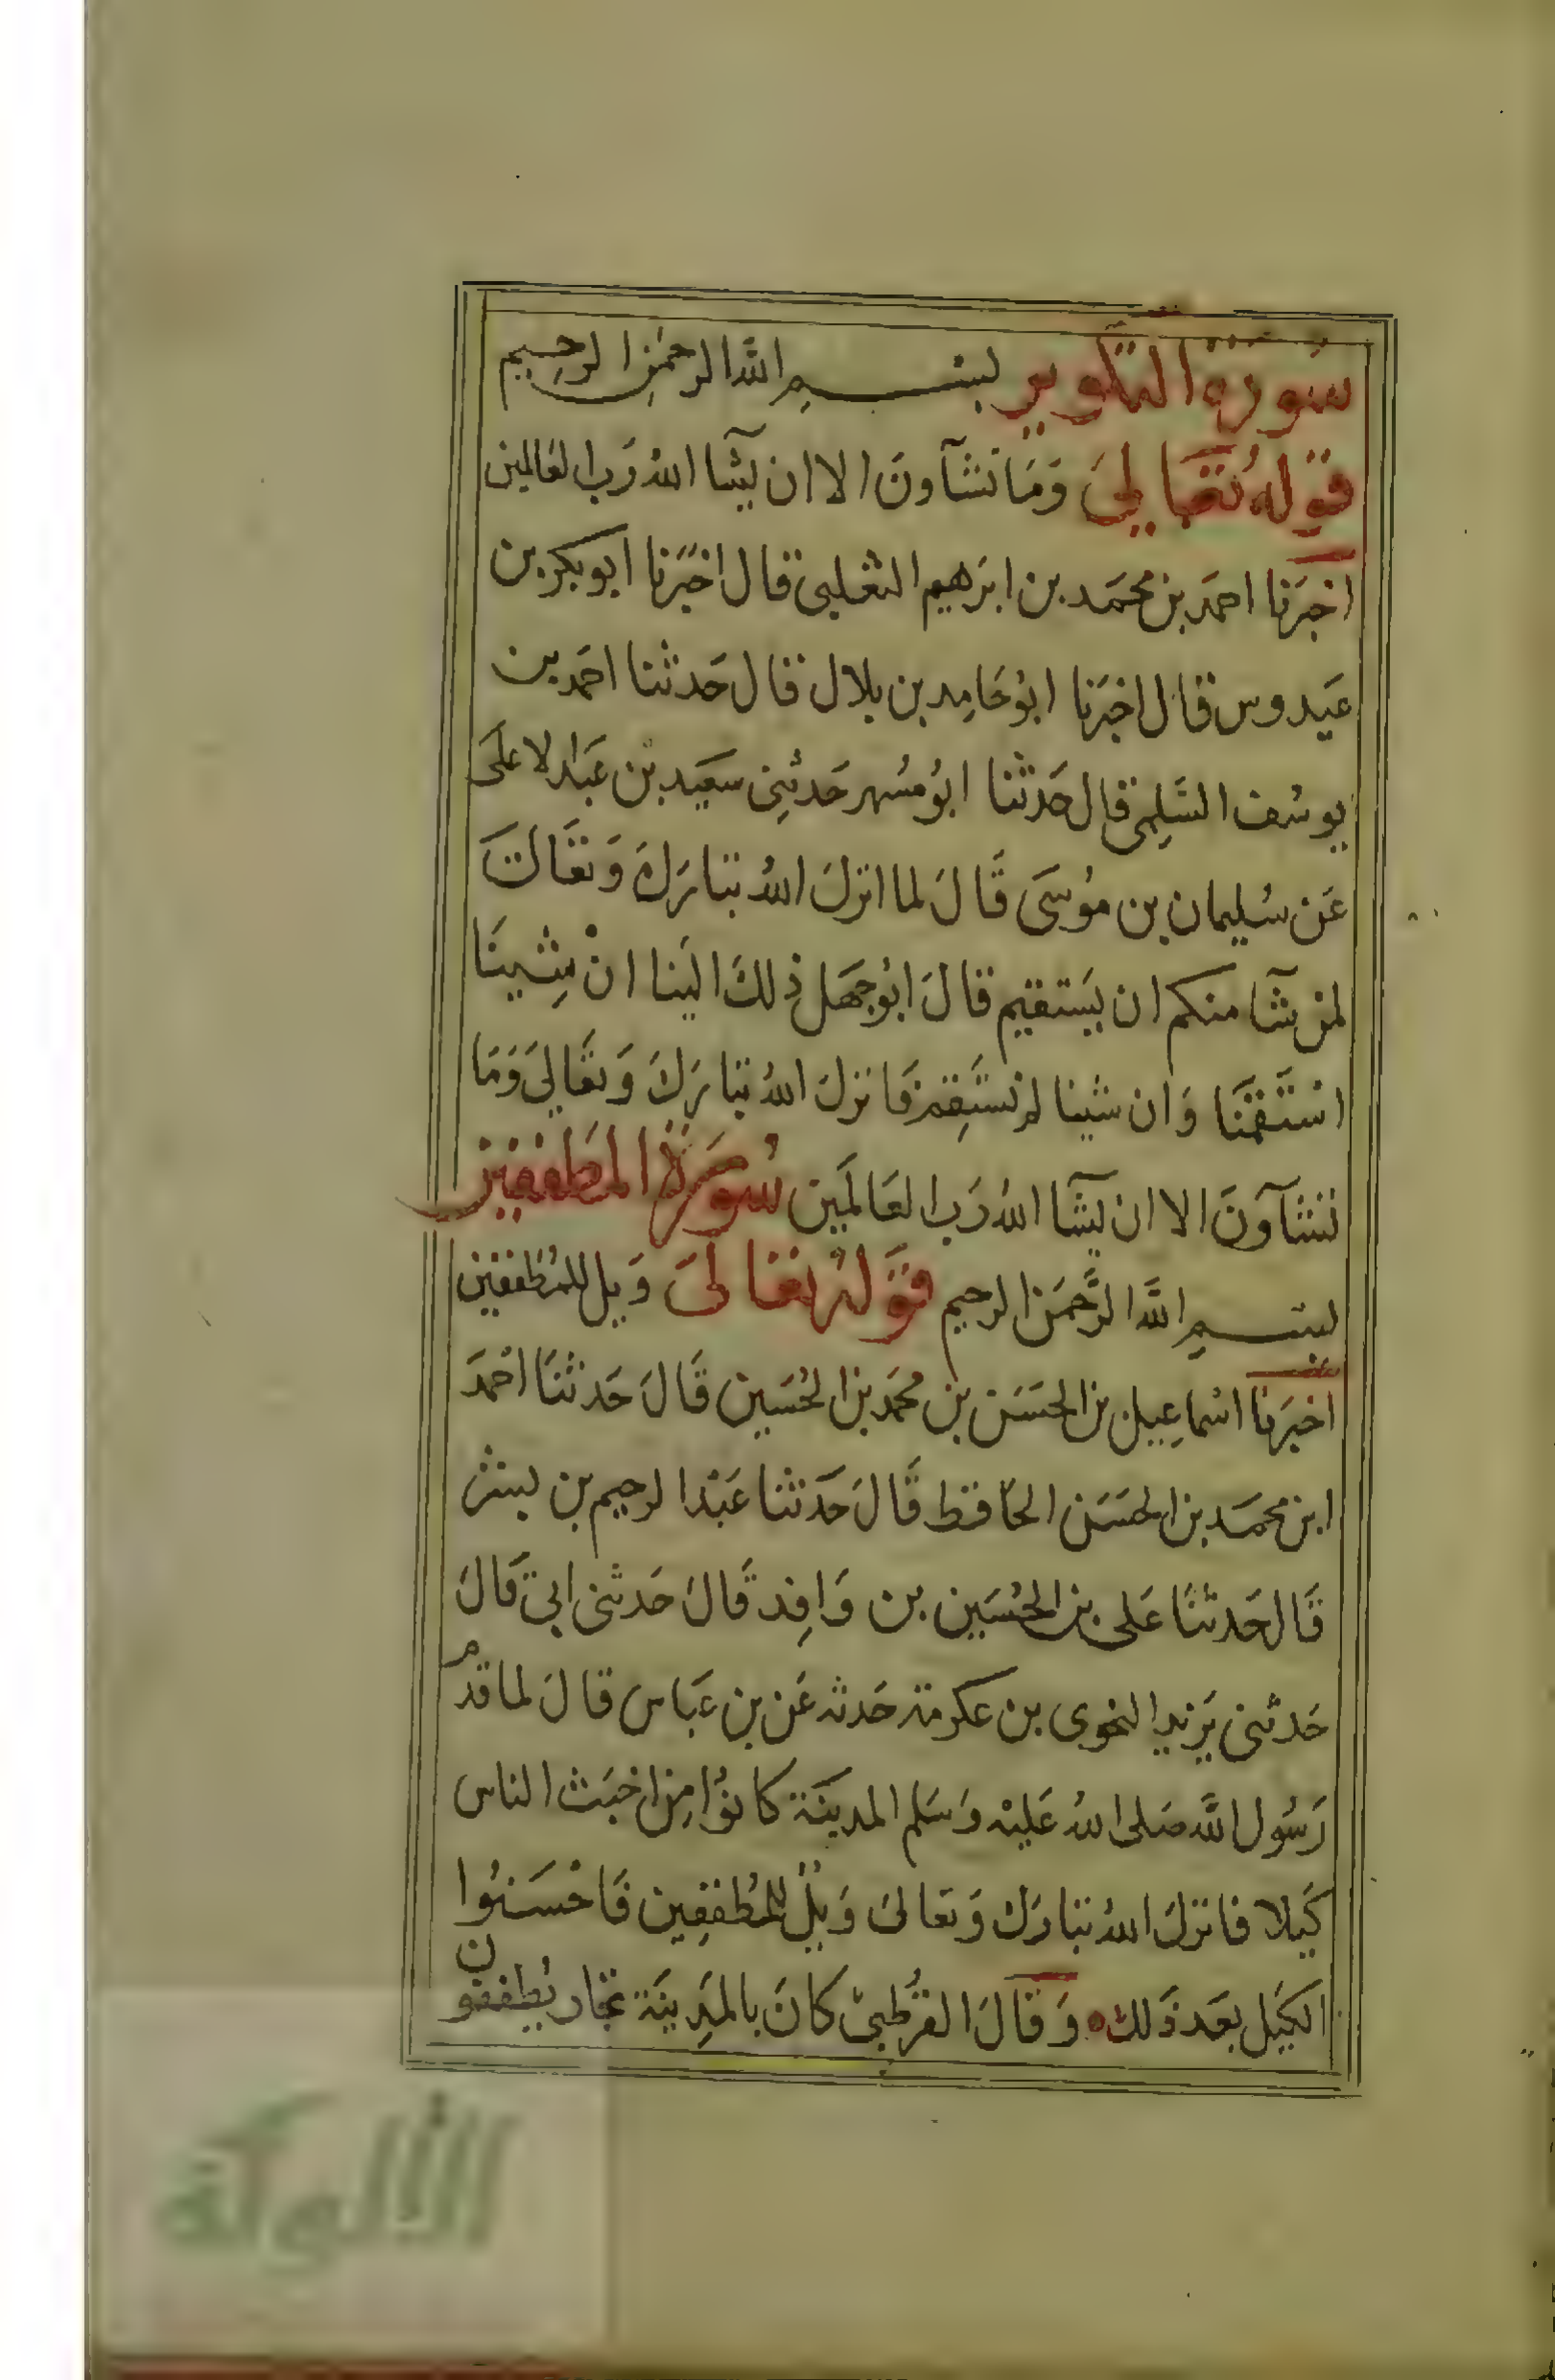 سورة التكوير بسم الله الرحمن الرحيم
قوله تعالى وَمَا تشَآونَ الا ان يشَآ اللهُ رَب العَالمين
اخبَرَنا احمَد بن محمَد بن ابرَهيم الثعلبى قال اخبَرَنا ابو بكر بن
عَبدوس قال اخبَرَنا ابوُ حَامِد بن بلال قال حَدثنا احمَد بن
يوسُف السَلِمى قال حَدثنا ابوُ مسُهر حَدثنِى سَعيَد بن عَبَد الاعلَى
عَن سُليمان بن موُسىَ قَالَ لما انزلَ اللهُ تبارَكَ وَتعَالىَ
لمن شآ منكم ان يَستقيم قالَ ابوُجهَل ذلكَ الَينا انْ شِينَا
استَقمنَا وَان شينا لم نستَقِم فَانزلَ اللهُ تبارَكَ وَتعَالىَ وَمَا
تشَآونَ الا ان يشَآ اللهُ رَب العَالمَين سُورَة المطَففين
بسم اللَّه الرَّحمَن الرحيم قوَلهُ تعَالىَ وَيل للمُطَففين
اخبرَنا اسْماعِيل بن الحسَن بن محمَد بن الحُسَين قَالَ حَدثنَا احْمَدَ
ابن محمَد بن الحسَن الحَافظ قَالَ حَدَثنا عَبْد الرحيم بن بشر
قَالَ حَدثنَا عَلى بن الحُسَين بن وَافِد قَالَ حَدثنى ابى قَالَ
حَدثنى يَزيد النحوى بن عكرمة حَدثه عَن بن عَباس قالَ لما قدُم
رَسُول اللَّه صَلى اللهُ عَليْه وَسَلم المدينَة كانوُا مِن اخبَث الناس
كَيلا فانزلَ اللهُ تبارَك وَتعالىَ وَيلٌ للمُطَففِين فَاحْسَنوُا
الكيَل بعَد ذَلك وَقَالَ القرُطبىْ كانَ بالمَدِينَة تجار يُطففون
الألوكة